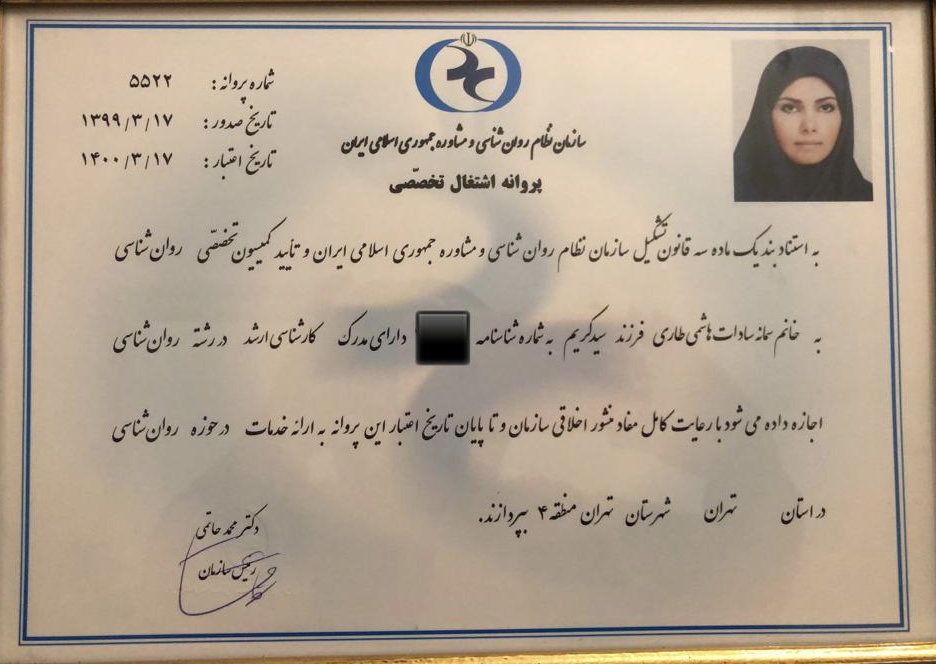 شماره پروانه: ۵۵۲۲
تاریخ صدور: ۱۳۹۹/۳/۱۷
تاریخ اعتبار: ۱۴۰۰/۳/۱۷
سازمان نظام روان شناسی و مشاوره جمهوری اسلامی ایران
پروانه اشتغال تخصّصی
به استناد بند یک ماده سه قانون تشکیل سازمان نظام روان شناسی و مشاوره جمهوری اسلامی ایران و تأیید کمیسیون تخصّصی روان شناسی
به خانم سمانه سادات هاشمی طاری فرزند سیدکریم به شماره شناسنامه دارای مدرک کارشناسی ارشد در رشته روان شناسی
اجازه داده می شود با رعایت کامل مفاد منشور اخلاقی سازمان و تا پایان تاریخ اعتبار این پروانه به ارائه خدمات در حوزه روان شناسی
در استان تهران شهرستان تهران منطقه ۴ بپردازند.
دکتر محمد حاتمی
رئیس سازمان